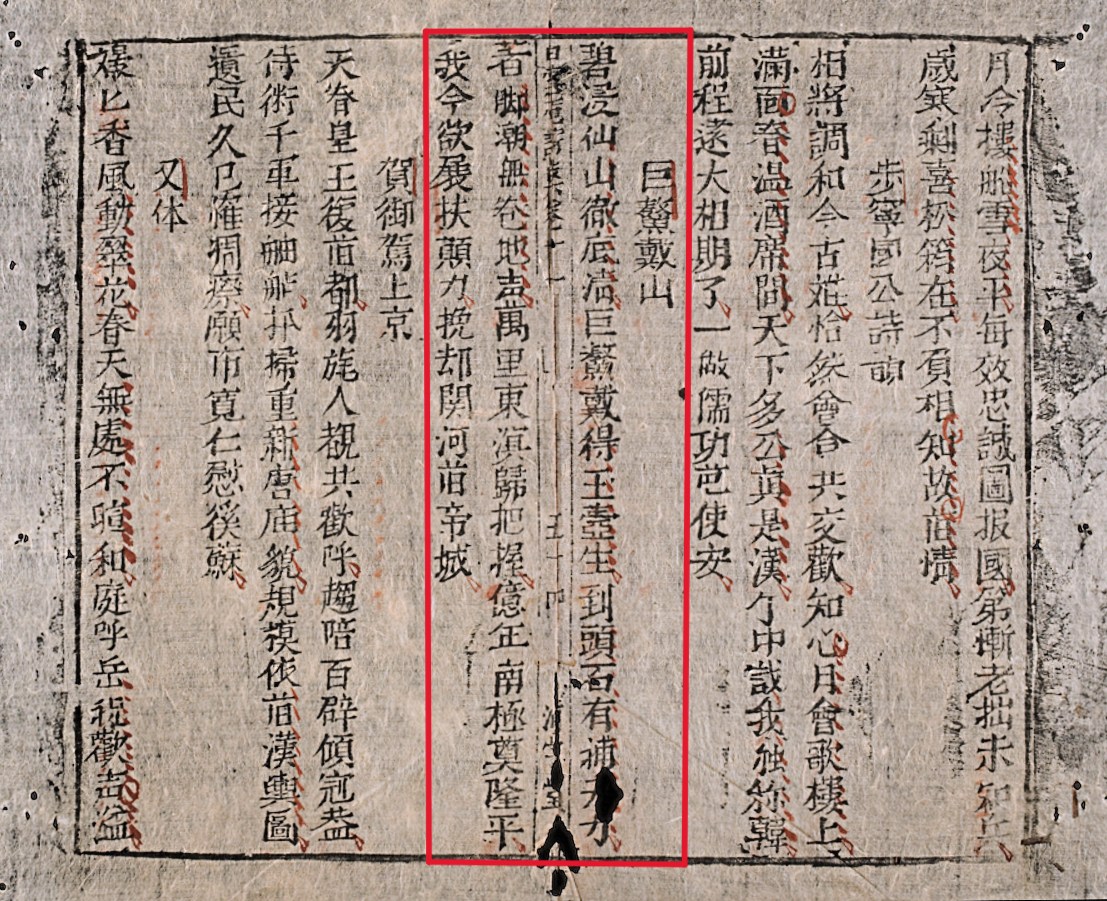 月今樓船雪夜平每效忠誠圖报國第慚老拙未知兵
歲寒剩喜松筠在不負相知故旧情
步寧國公詩韵
相將調和今古难恰然會合共交歡知心月會歌樓上
滿面春温酒席間天下多公真是漢中識我独称韓
前程遠大相期了一做儒功芭使安
巨鰲戴山
碧浸仙山徹底清巨鰲戴得玉壺生到頭石有補天力
五十四
著脚潮無卷地声萬里東溟歸把握億年南極奠隆平
我今欲展扶顛力挽却関河旧帝城
賀御駕上京
天眷皇王復旧都羽旄人觀共歡呼趨陪百辟傾冠盖
侍衛千軍接舳艫掃重新唐庙貌規模依旧漢輿圖
遺民久已罹稠瘵願市寬仁慰徯蘇
又体
裊匕香風動翠花春天無處不暄和庭呼岳祝歡声溢